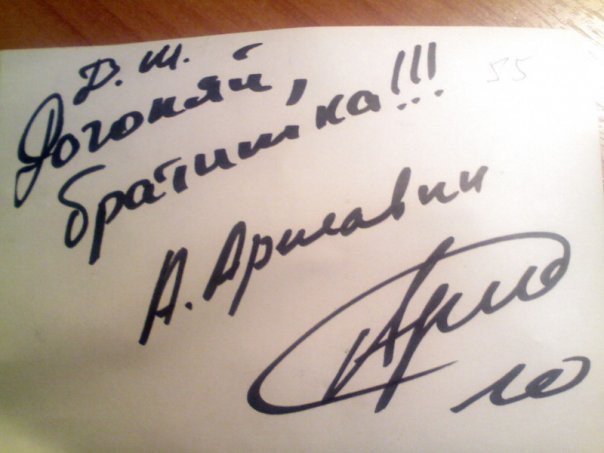 Д. Ш.
55
Догоняй,
братишка!!!
А. Аршавин
Арш
10